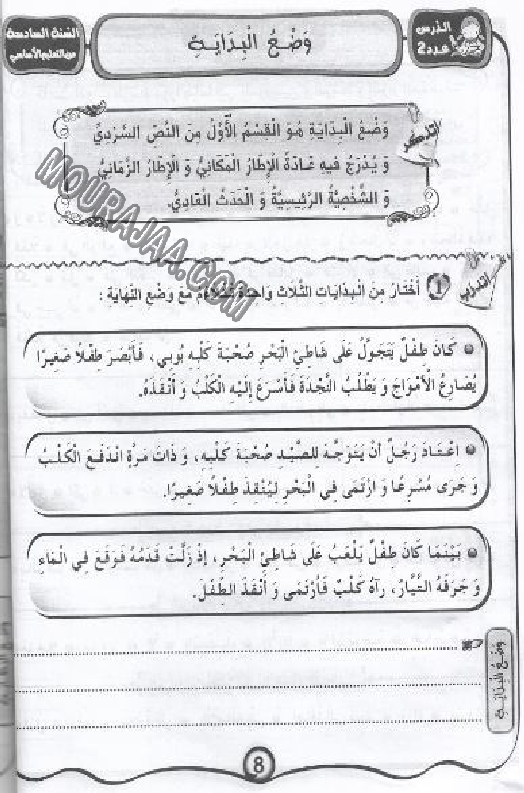 الدّرس
عدد 2
وَضْعُ الْبِدَايَةِ
السّنة السادسة
من التعليم الأساسي
وَضْعُ الْبِدَايَةِ هُوَ الْقِسْمُ الْأَوَّلُ مِنَ النَّصِّ السَّرْدِيِّ
وَ يُدْرَجُ فِيهِ عَادَةً الْإِطَارُ الْمَكَانِيُّ وَ الْإِطَارُ الزَّمَانِيُّ
وَ الشَّخْصِيَّةُ الرَّئِيسِيَّةُ وَ الْحَدَثُ الْعَادِيُّ.
MOURAJAA.COM
1 أَخْتَارُ مِنَ الْبِدَايَاتِ الثَّلَاثِ وَاحِدَةً تَتَلَاءَمُ مَعَ وَضْعِ النِّهَايَةِ :
• كَانَ طِفْلٌ يَتَجَوَّلُ عَلَى شَاطِئِ الْبَحْرِ صُحْبَةَ كَلْبِهِ بُوبِي، فَأَبْصَرَ طِفْلًا صَغِيرًا
يُصَارِعُ الْأَمْوَاجَ وَ يَطْلُبُ النَّجْدَةَ فَأَسْرَعَ إِلَيْهِ الْكَلْبُ وَ أَنْقَذَهُ.
• اِعْتَادَ رَجُلٌ أَنْ يَتَوَجَّهَ للصَّيْدِ صُحْبَةَ كَلْبِهِ، وَ ذَاتَ مَرَّةٍ انْدَفَعَ الْكَلْبُ
وَ جَرَى مُسْرِعًا وَ ارْتَمَى فِي الْبَحْرِ لِيُنْقِذَ طِفْلًا صَغِيرًا.
• بَيْنَمَا كَانَ طِفْلٌ يَلْعَبُ عَلَى شَاطِئِ الْبَحْرِ، إِذْ زَلَّتْ قَدَمُهُ فَوَقَعَ فِي الْمَاءِ
وَ جَرَفَهُ التَّيَّارُ، رَآهُ كَلْبٌ فَارْتَمَى وَ أَنْقَذَ الطِّفْلَ.
وَضْعُ الْبِدَايَةِ
8